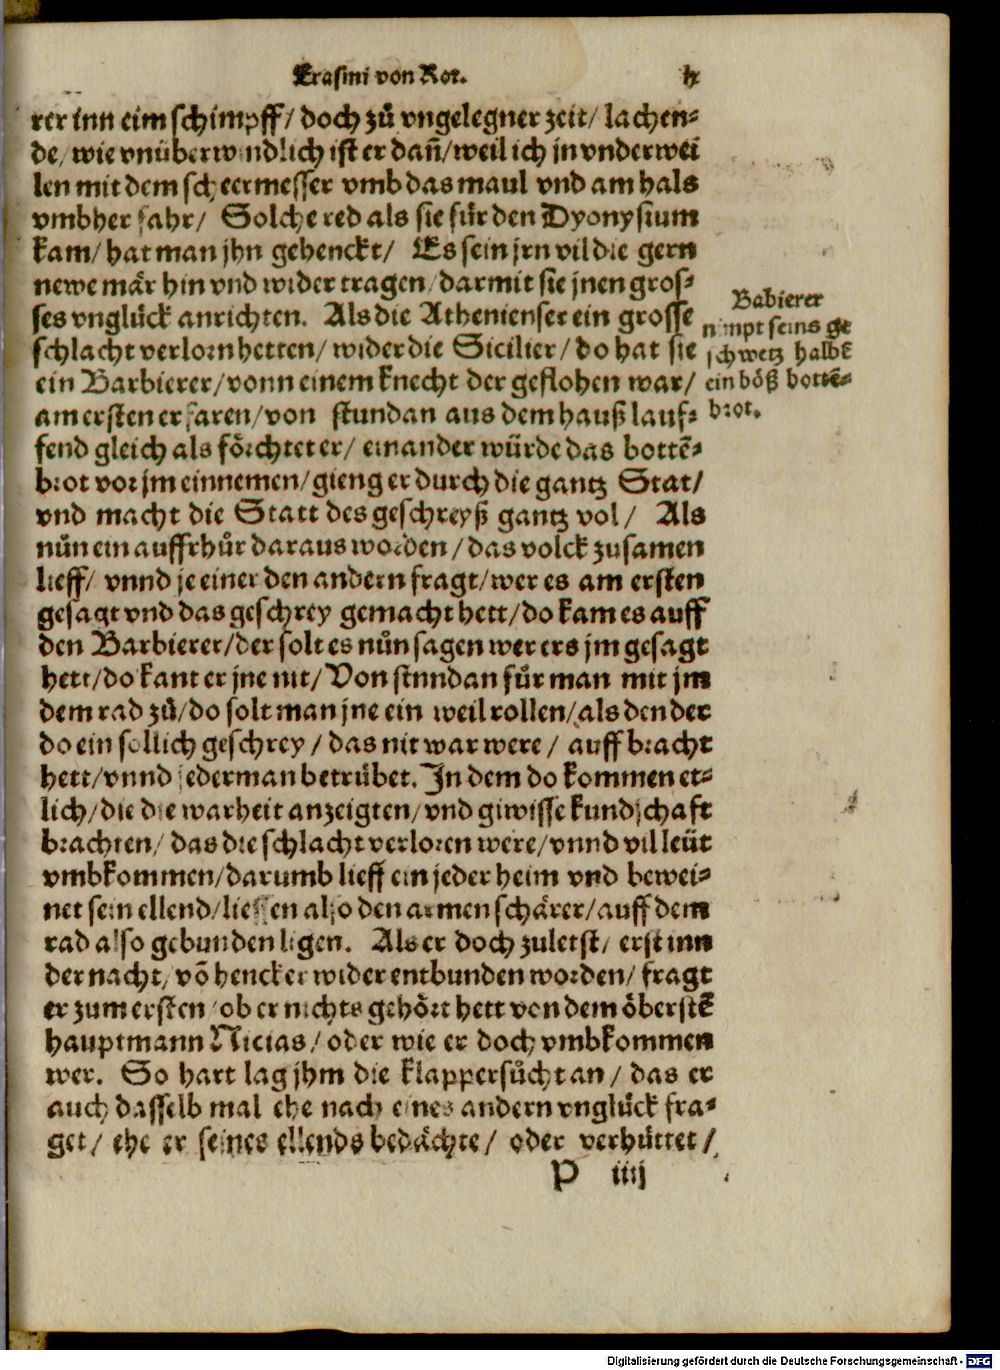 Erasmi von Rot. lx
rer inn eim schimpff/ doch zů vngelegner zeit/ lachen-
de/ wie vnüberwindlich ist er dañ/ weil ich jn vnderwei
len mit dem scheermesser vmb das maul vnd am hals
vmbher fahr/ Solche red als sie für den Dyonysium
kam/ hat man jhn gehenckt/ Es sein jrn vil die gern
newe mär hin vnd wider tragen/ darmit sie jnen gros-
ses vnglück anrichten. Als die Athenienser ein grosse
schlacht verlorn hetten/ wider die Sicilier/ do hat sie
ein Barbierer/ vonn einem knecht der geflohen war/
am ersten erfaren/ von stundan aus dem hauß lauf-
fend gleich als förchtet er/ ein ander würde das bottẽ-
brot vor jm einnemen/ gieng er durch die gantz Stat/
vnd macht die Statt des geschreyß gantz vol/ Als
nůn ein auffrhůr daraus worden/ das volck zusamen
lieff/ vnnd je einer den andern fragt/ wer es am ersten
gesagt vnd das geschrey gemacht hett/ do kam es auff
den Barbierer/ der solt es nůn sagen wer ers jm gesagt
hett/ do kant er jne nit/ Von stundan fůr man mit jm
dem rad zů/ do solt man jne ein weil rollen/ als den der
do ein sollich geschrey/ das nit war were/ auff bracht
hett/ vnnd jederman betrübet. In dem do kommen et-
lich/ die die warheit anzeigten/ vnd giwisse kundschaft
brachten/ das die schlacht verloren were/ vnnd vil leüt
vmbkommen/ darumb lieff ein jeder heim vnd bewei-
net sein ellend/ liessen also den armen schärer/ auff dem
rad also gebunden ligen. Als er doch zuletst/ erst inn
der nacht/ võ hencker wider entbunden worden/ fragt
er zum ersten/ ob er nichts gehört hett von dem öberstẽ
hauptmann Nicias/ oder wie er doch vmbkommen
wer. So hart lag jhm die klappersůcht an/ das er
auch dasselb mal ehe nach eines andern vnglück fra-
get/ ehe er seines ellends bedächte/ oder verhüttet/
P iiij
Babierer
nimpt seins ge
schwetz halbẽ
ein böß bottẽ-
brot.
Digitalisierung gefördert durch die Deutsche Forschungsgemeinschaft - DFG